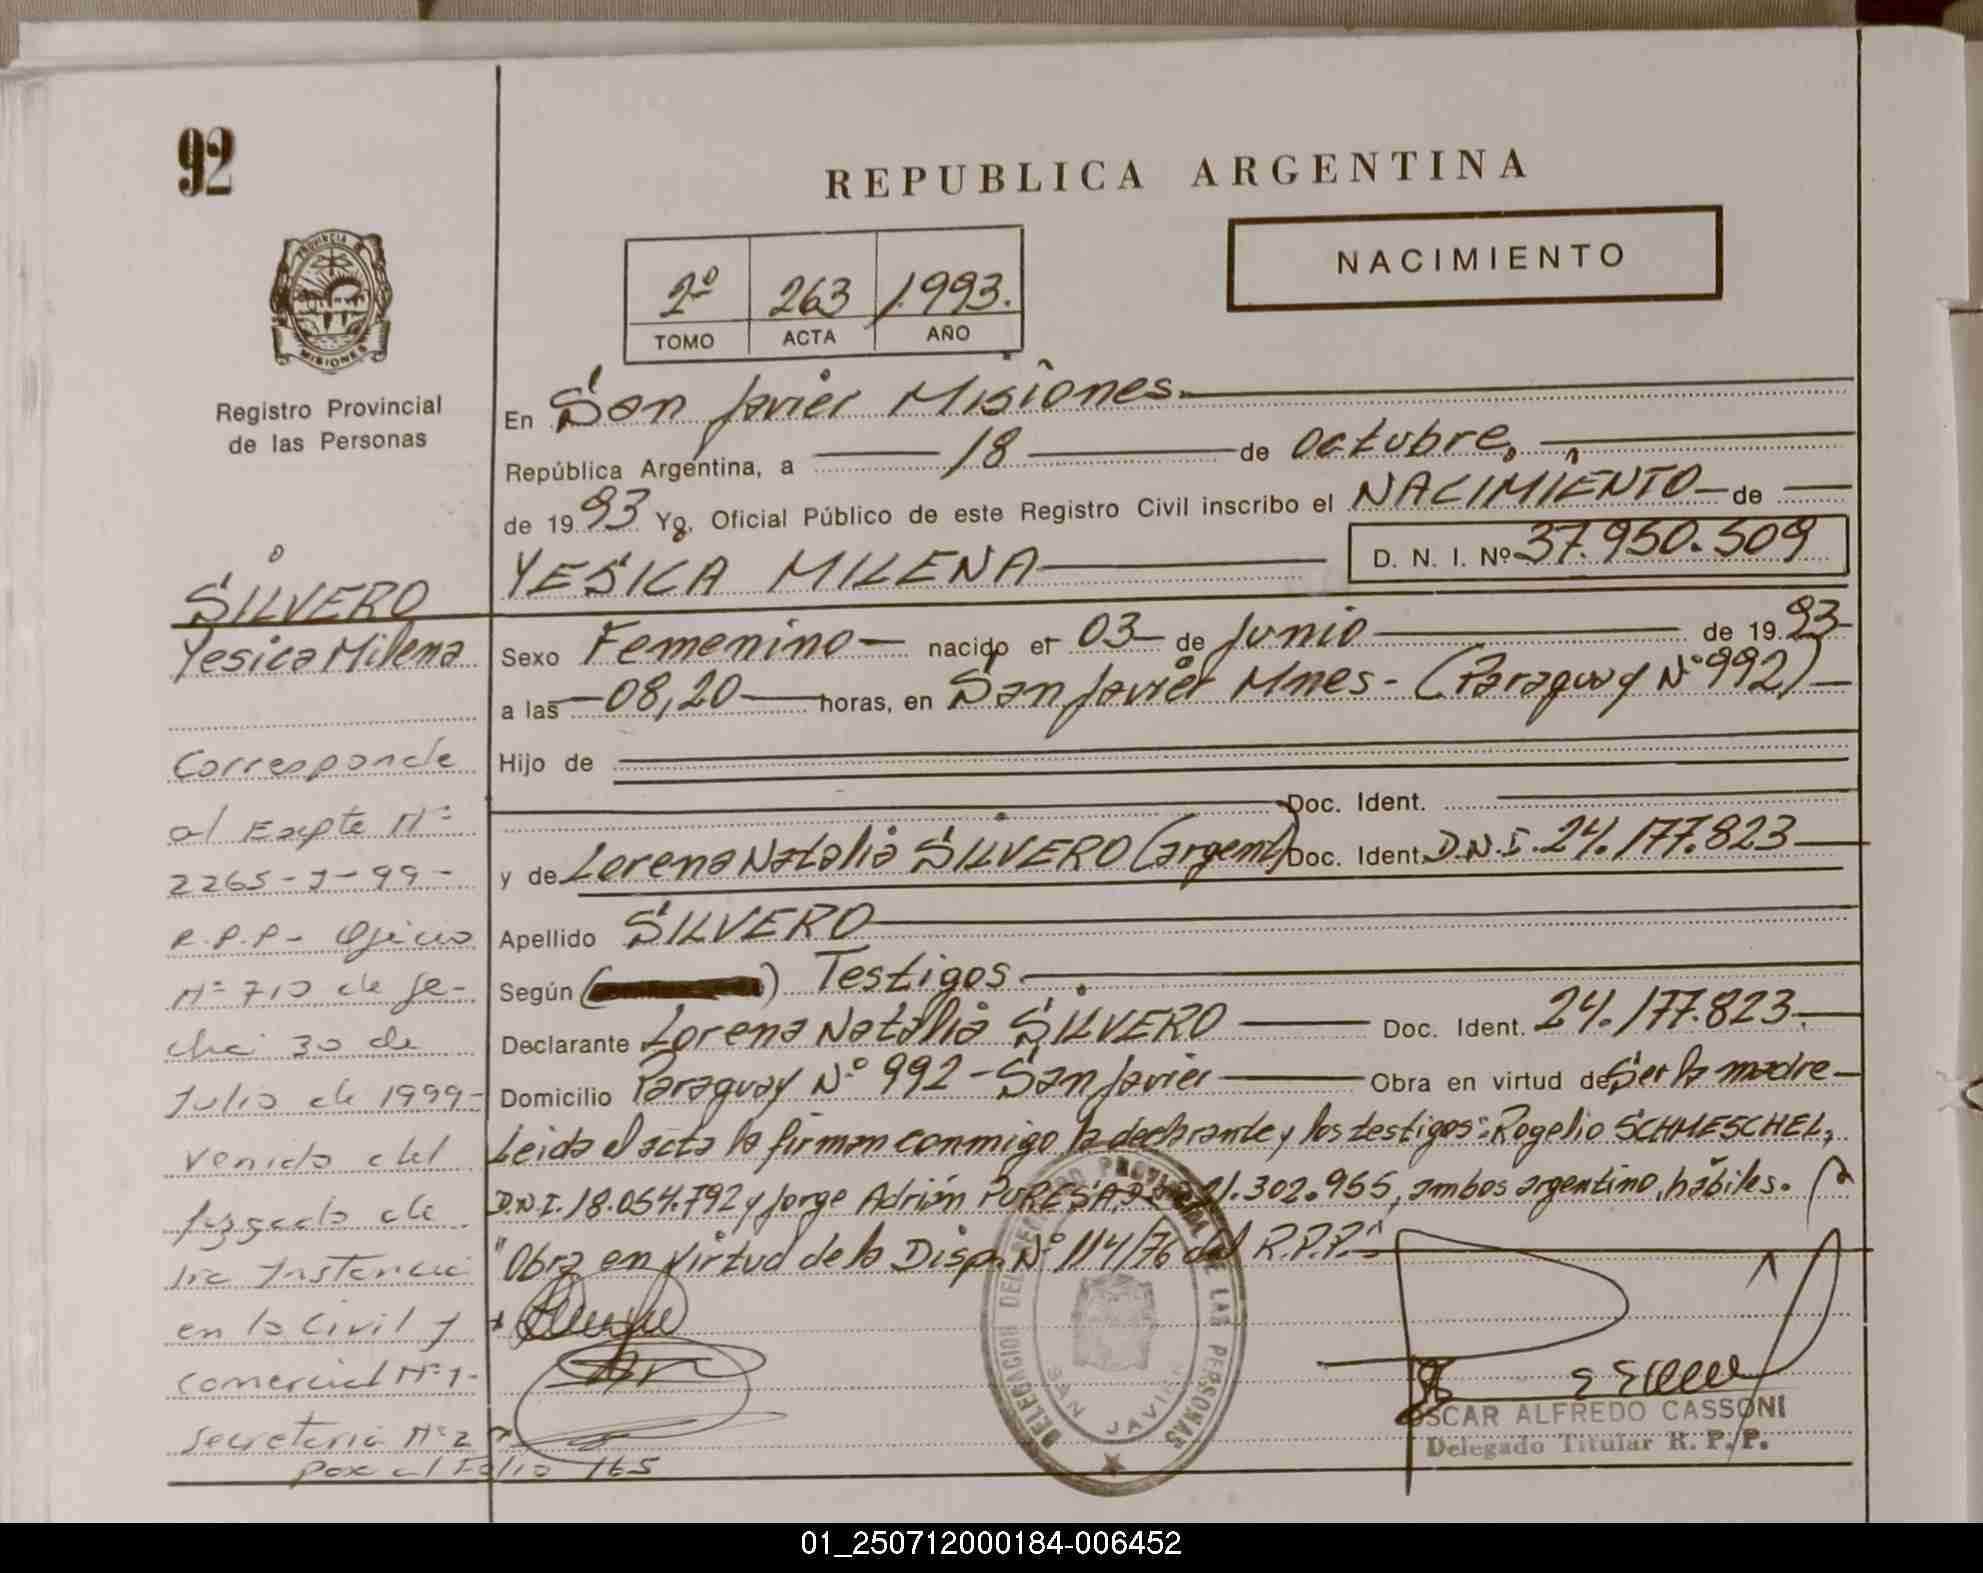 92
REPUBLICA ARGENTINA
NACIMIENTO
2º 263 1.993.
TOMO ACTA AÑO
PROVINCIA DE MISIONES
Registro Provincial
de las Personas
En San Javier Misiones
República Argentina, a 18 de octubre.
de 19 93 Yo, Oficial Público de este Registro Civil inscribo el NACIMIENTO de
YESICA MILENA D. N. I. Nº 37.950.509
Sexo Femenino nacido el 03 de Junio de 19 93
a las 08,20 horas, en San Javier Mnes - (Paraguay Nº 992)
Hijo de
Doc. Ident.
y de Lorena Natalia SILVERO (argent) Doc. Ident. D.N.I. 24.177.823
Apellido SILVERO
Según ( ) Testigos
Declarante Lorena Natalia SILVERO Doc. Ident. 24.177.823
Domicilio Paraguay Nº 992 - San Javier Obra en virtud de Ser la madre
Leida el acta la firman conmigo la declarante y los testigos: Rogelio SCHMESCHEL,
D.N.I. 18.054.792 y Jorge Adrián 21.302.955, ambos argentino, hábiles.
"Obra en virtud de la Disp. Nº 114/76 del R.P.P."
SILVERO
Yesica Milena
Corresponde
al Expte Nº
2265-J-99-
R.P.P- Oficio
Nº 710 de fe-
cha 30 de
Julio de 1999-
venido del
Juzgado de
1ra Instancia
en lo Civil y
comercial Nº 1-
Secretaria Nº 2
pax al Folio 165
DELEGACION DEL REGISTRO PROVINCIAL DE LAS PERSONAS
SAN JAVIER
OSCAR ALFREDO CASSONI
Delegado Titular R. P. P.
01_250712000184-006452